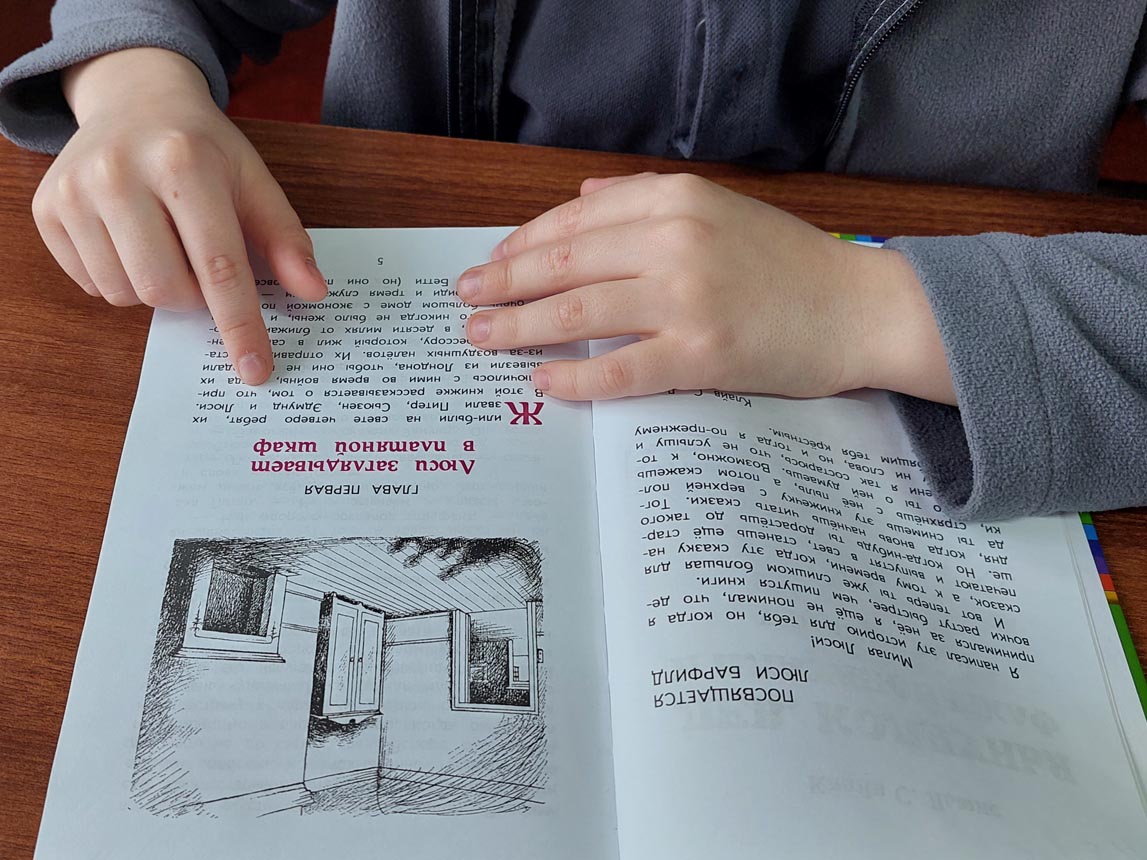 ПОСВЯЩАЕТСЯ
ЛЮСИ БАРФИЛД
Милая Люси!
Я написал эту историю для тебя, но когда я
принимался за неё, я ещё не понимал, что де-
вочки растут быстрее, чем пишутся книги.
И вот теперь ты уже слишком большая для
сказок, а к тому времени, когда эту сказку на-
печатают и выпустят в свет, станешь ещё стар-
ше. Но когда-нибудь ты дорастёшь до такого
дня, когда вновь начнёшь читать сказки. Тог-
да, ты снимешь эту книжечку с верхней пол-
ки, стряхнёшь с неё пыль, а потом скажешь
ты о ней думаешь. Возможно, к то-
я так состарюсь, что не услышу и
ни слова, но и тогда я по-прежнему
тебя крёстным.
Клайв С.
ГЛАВА ПЕРВАЯ
Люси заглядывает
в платяной шкаф
Жили-были на свете четверо ребят, их
звали Питер, Сьюзен, Эдмунд и Люси.
В этой книжке рассказывается о том, что при-
ключилось с ними во время войны, когда их
вывезли из Лондона, чтобы они не
из-за воздушных налётов. Их
который жил в
в десяти милях от
никогда не было жены, и
большом доме с экономкой
и тремя
Бетти (но они
5